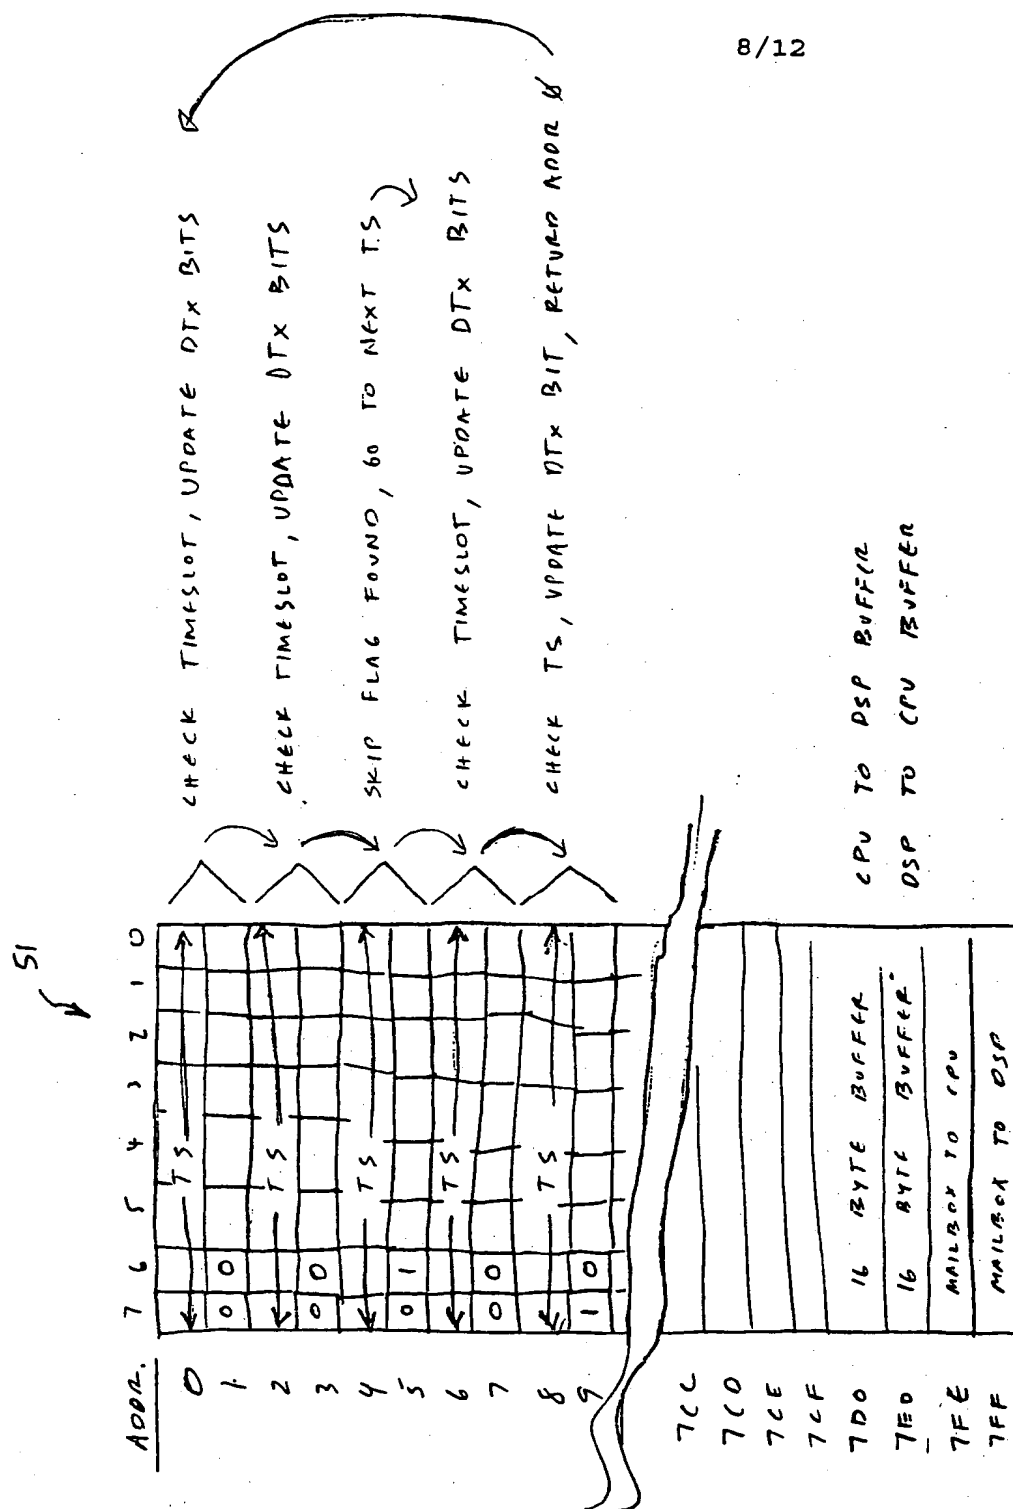 8/12
51
ADDR. 7 6 5 4 3 2 1 0
0 TS CHECK TIMESLOT, UPDATE DTX BITS
1 0 0
2 TS CHECK TIMESLOT, UPDATE DTX BITS
3 0 0
4 TS SKIP FLAG FOUND, GO TO NEXT T.S
5 0 1
6 TS CHECK TIMESLOT, UPDATE DTX BITS
7 0 0
8 TS CHECK TS, UPDATE DTX BIT, RETURN ADDR 0
9 1 0
7CC
7CD
7CE
7CF
7D0 16 BYTE BUFFER CPU TO DSP BUFFER
7E0 16 BYTE BUFFER DSP TO CPU BUFFER
7FE MAILBOX TO CPU
7FF MAILBOX TO DSP